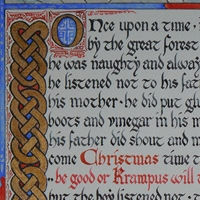 Once upon a time
by the great forest
he was naughty and alway
he listened not to his fat
his mother. he did put glu
boots and vinegar in his m
his father did shout and m
come Christmas time t
be good or Krampus will t
but the boy listened not. t